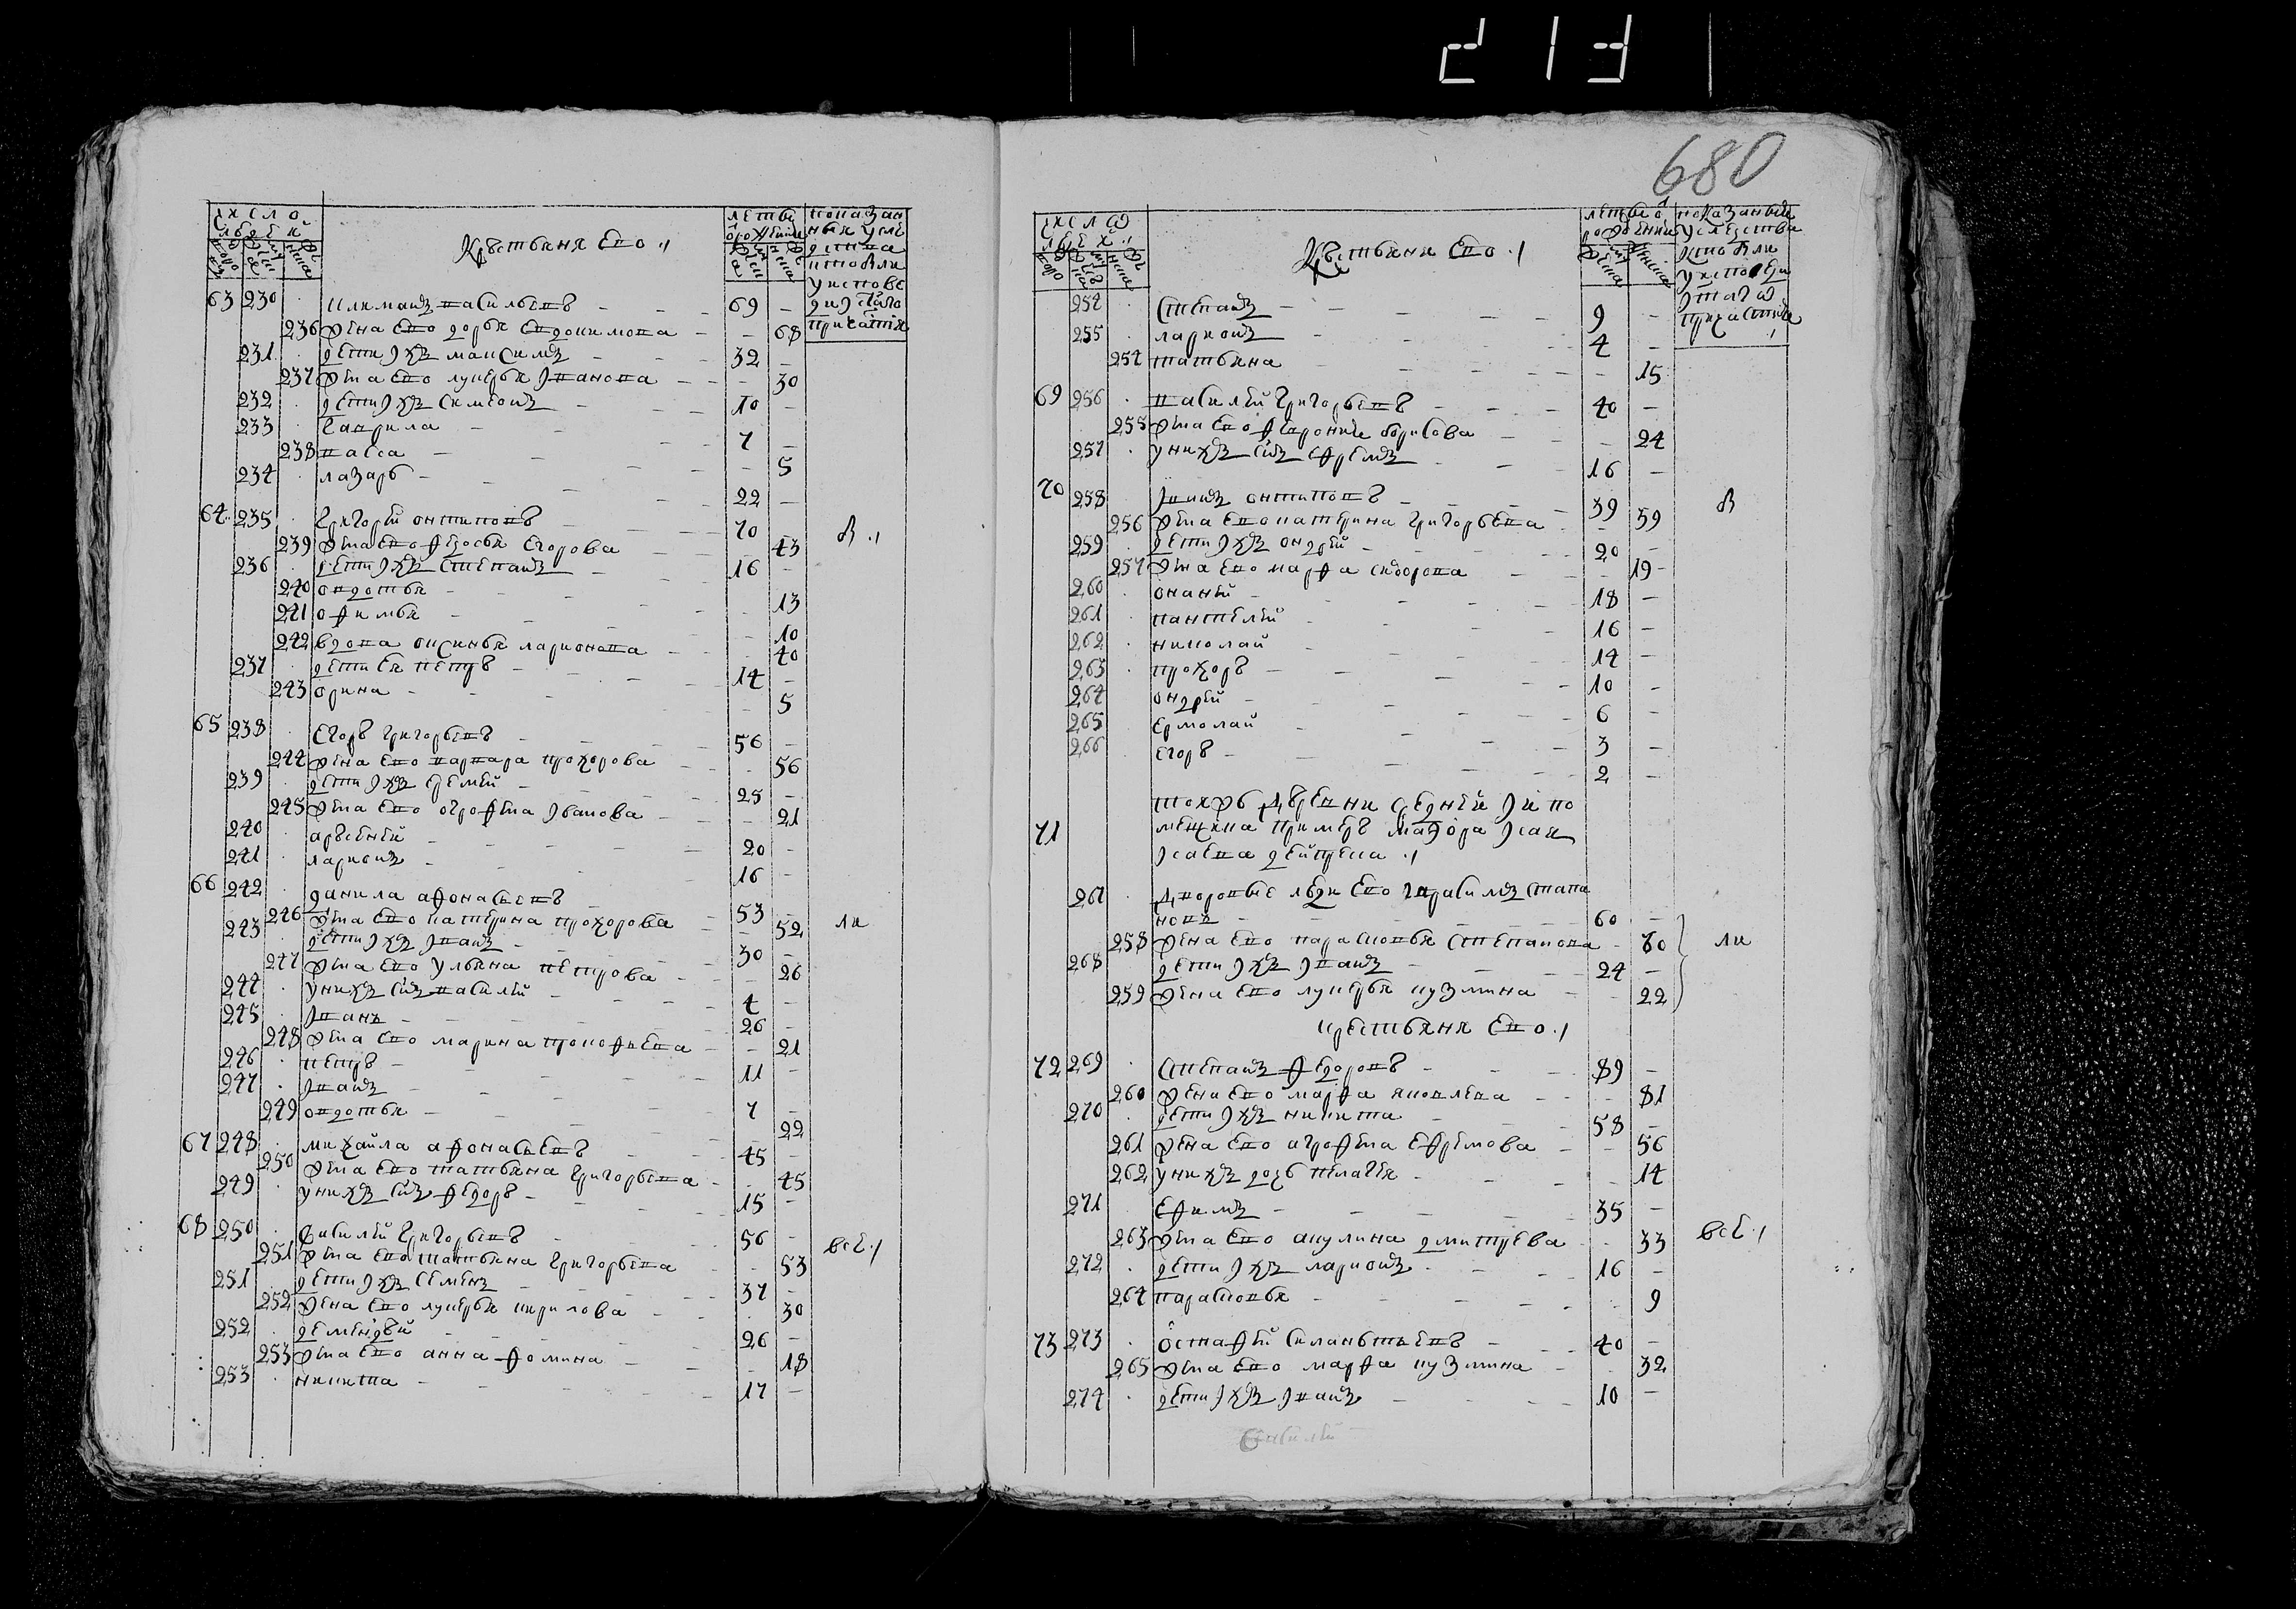 213
680
число людей
двороваго
мужеска
женска
Крестьяня ево
лета от рождения
мужеска
женска
показанных из действа кто были у исповеди и святого причастия
63 230 Климантъ васильевъ 69
236 жена ево дарья евдокимова 68
231 дети ихъ максимъ 32
237 жена ево лукерья иванова 30
232 дети ихъ симеонъ 10
233 гаврила 7
238 васса 5
234 лазарь 22
64 235 григорей онтиповъ 70
239 жена ево федосья егорова 43 в
236 дети ихъ степанъ 16
240 овдотья 13
241 офимья 10
242 вдова оксинья ларионова 40
237 дети ея петръ 14
243 орина 5
65 238 егоръ григорьевъ 56
244 жена ево варвара прохорова 56
239 дети ихъ еремей 25
245 жена ево огрофена иванова 21
240 арсеней 20
241 ларионъ 16
66 242 данила афонасьевъ 53
246 жена ево катерина прохорова 52 ли
243 дети ихъ иванъ 30
247 жена ево ульяна петрова 26
244 у нихъ сынъ василей 4
245 иванъ 26
248 жена ево марина прокофьева 21
246 петръ 11
247 иванъ 7
249 овдотья 22
67 248 михайла афонасьевъ 45
250 жена ево татьяна григорьева 45
249 у нихъ сынъ федоръ 15
68 250 василей григорьевъ 56 все
251 жена ево татьяна григорьева 53
251 дети ихъ семенъ 37
252 жена ево лукерья кирилова 30
252 дементей 26
253 жена ево анна фомина 18
253 никита 17
число людей
двороваго
мужеска
женска
Крестьяня ево
лета от рождения
мужеска
женска
254 степанъ 9
255 ларионъ 4
254 татьяна 15
69 256 василей григорьевъ 40
255 жена ево февронья борисова 24
257 у нихъ сынъ ефремъ 16
70 258 иванъ онтиповъ 39 в
256 жена ево катерина григорьева 39
259 дети ихъ ондрей 20
257 жена ево марфа сидорова 19
260 онаней 18
261 пантелей 16
262 николай 14
263 прохоръ 10
264 ондрей 6
265 ермолай 3
266 егоръ 2
тояжъ деревни средней
71 мещика примеръ маэора исая
исаева
267 дворовые люди ево герасимъ
60
258 жена ево парасковья степанова 60 ли
268 дети ихъ иванъ 24
259 жена ево лукерья кузмина 22
крестьяня ево
72 269 степанъ федоровъ 89
260 жена ево марфа яковлева 81
270 дети ихъ никита 58
261 жена ево агрофена ефремова 56
262 у нихъ дочь пелагея 14
271 ефимъ 35
263 жена ево акулина дмитрева 33 все
272 дети ихъ ларионъ 16
264 парасковья 9
73 273 остафей силантьевъ 40
265 жена ево марфа кузмина 32
274 дети ихъ иванъ 10
василей